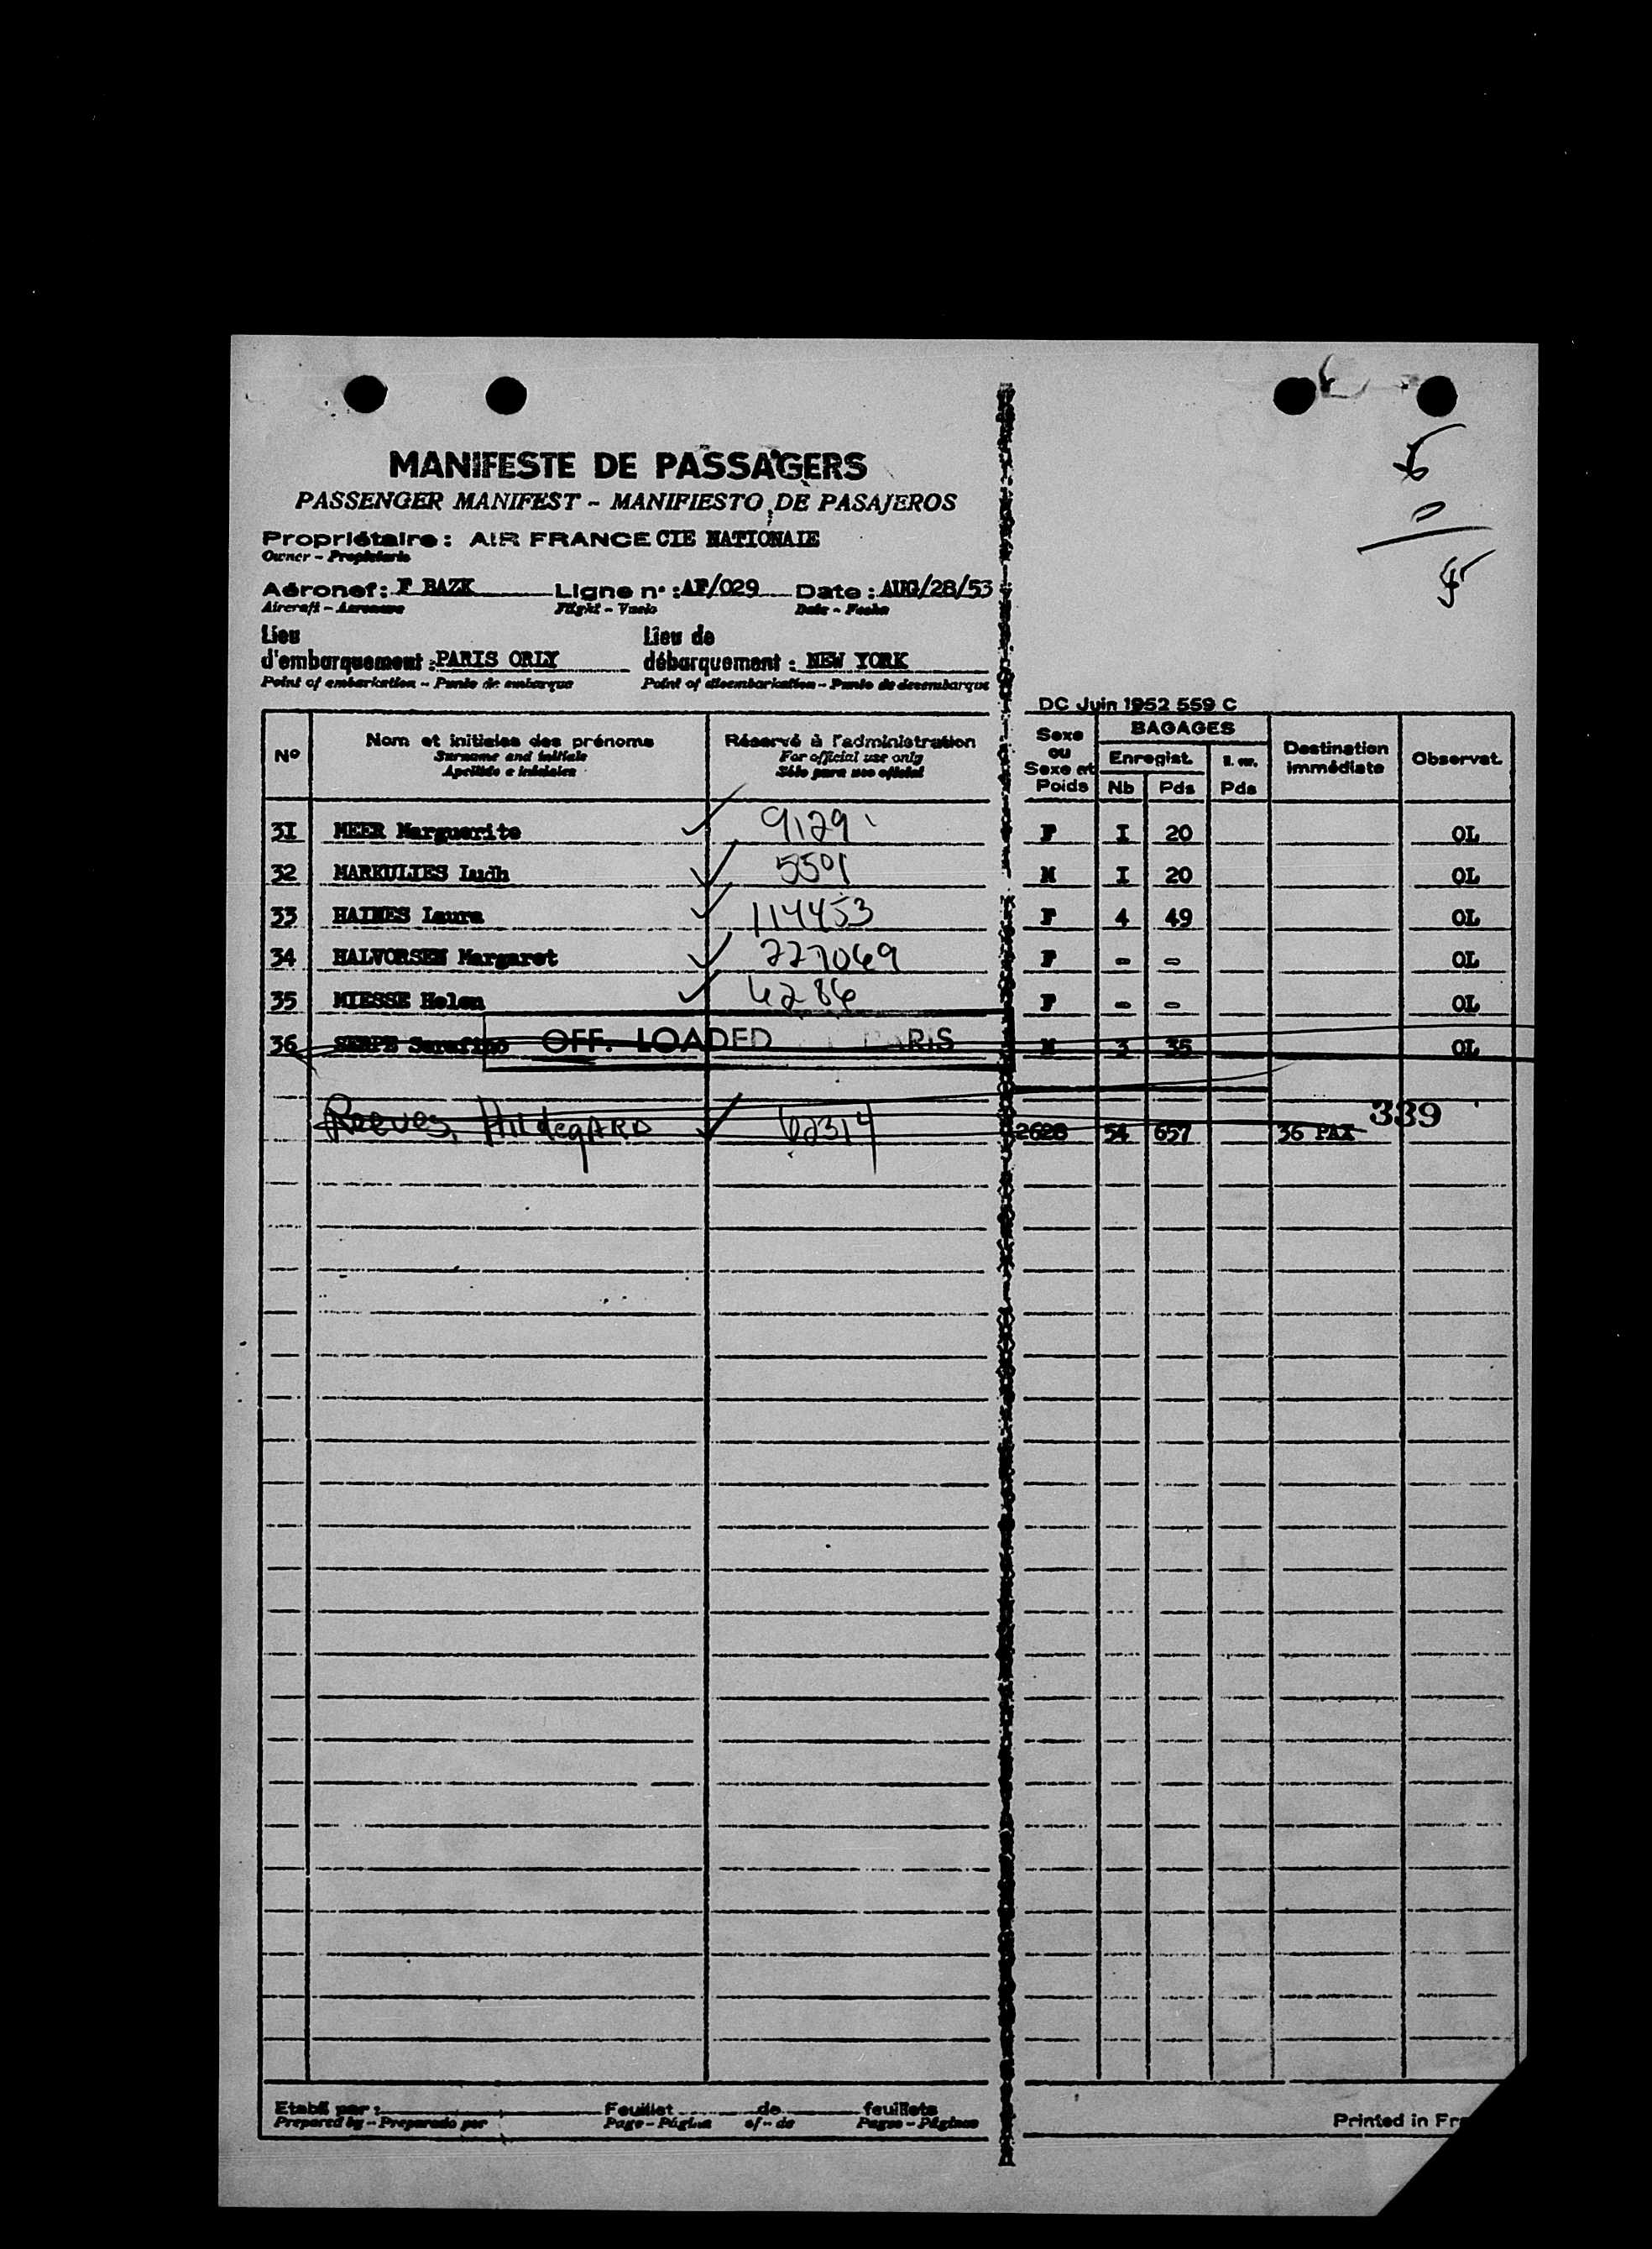 MANIFESTE DE PASSAGERS
PASSENGER MANIFEST - MANIFIESTO DE PASAJEROS
Propriétaire : AIR FRANCE CIE NATIONALE
Owner - Propietario
Aéronef : F BAZK Ligne n° : AF/029 Date : AUG/28/53
Aircraft - Aeronave Flight - Vuelo Date - Fecha
Lieu Lieu de
d'embarquement : PARIS ORLY débarquement : NEW YORK
Point of embarkation - Punto de embarque Point of disembarkation - Punto de desembarque
DC Juin 1952 559 C
N° Nom et initiales des prénoms Réservé à l'administration Sexe ou Sexe et Poids BAGAGES Destination immédiate Observat.
Surname and initials For official use only Enregist.
Apellido e iniciales Sólo para uso oficial Nb Pds Pds
31 MEER Marguerite 9129 F I 20 OL
32 MARKULIES Ludh 5501 M I 20 OL
33 HAINES Laura 114453 F 4 49 OL
34 HALVORSEN Margaret 227069 F - - OL
35 MIESSE Helen 6286 F - - OL
36 SERPE Serafino OFF. LOADED PARIS M 3 35 OL
339
Reeves, HildegARD 62314 2628 54 657 36 PAX
Etabli par : Feuillet de feuillets
Prepared by - Preparado por Page - Página of - de Pages - Páginas
Printed in Fra